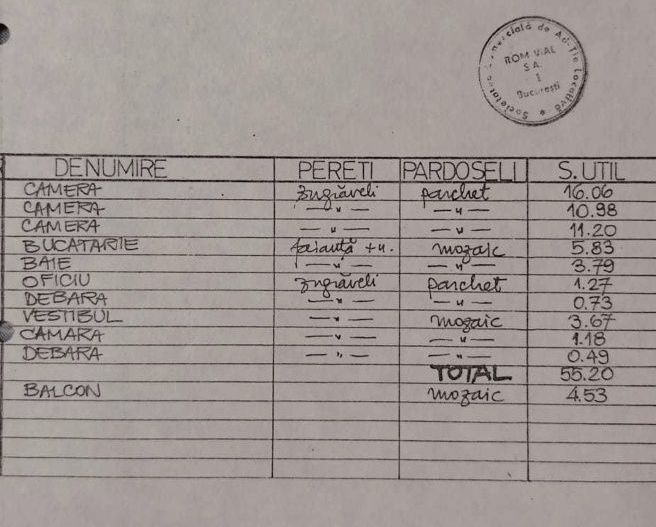 Societatea Comercială de Ad-ție Locativă
ROM VIAL
S.A.
1
București
DENUMIRE PERETI PARDOSELI S. UTIL
CAMERA zugrăveli parchet 16.06
CAMERA — " — — " — 10.98
CAMERA — " — — " — 11.20
BUCATARIE faianță + u. mozaic 5.83
BAIE — " — — " — 3.79
OFICIU zugrăveli parchet 1.27
DEBARA — " — — " — 0.73
VESTIBUL — " — mozaic 3.67
CAMARA — " — — " — 1.18
DEBARA — " — — " — 0.49
TOTAL 55.20
BALCON mozaic 4.53